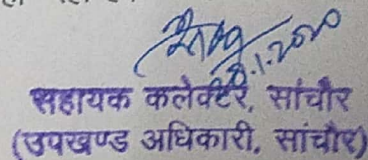 28.1.2020
सहायक कलेक्टर, सांचौर
(उपखण्ड अधिकारी, सांचौर)